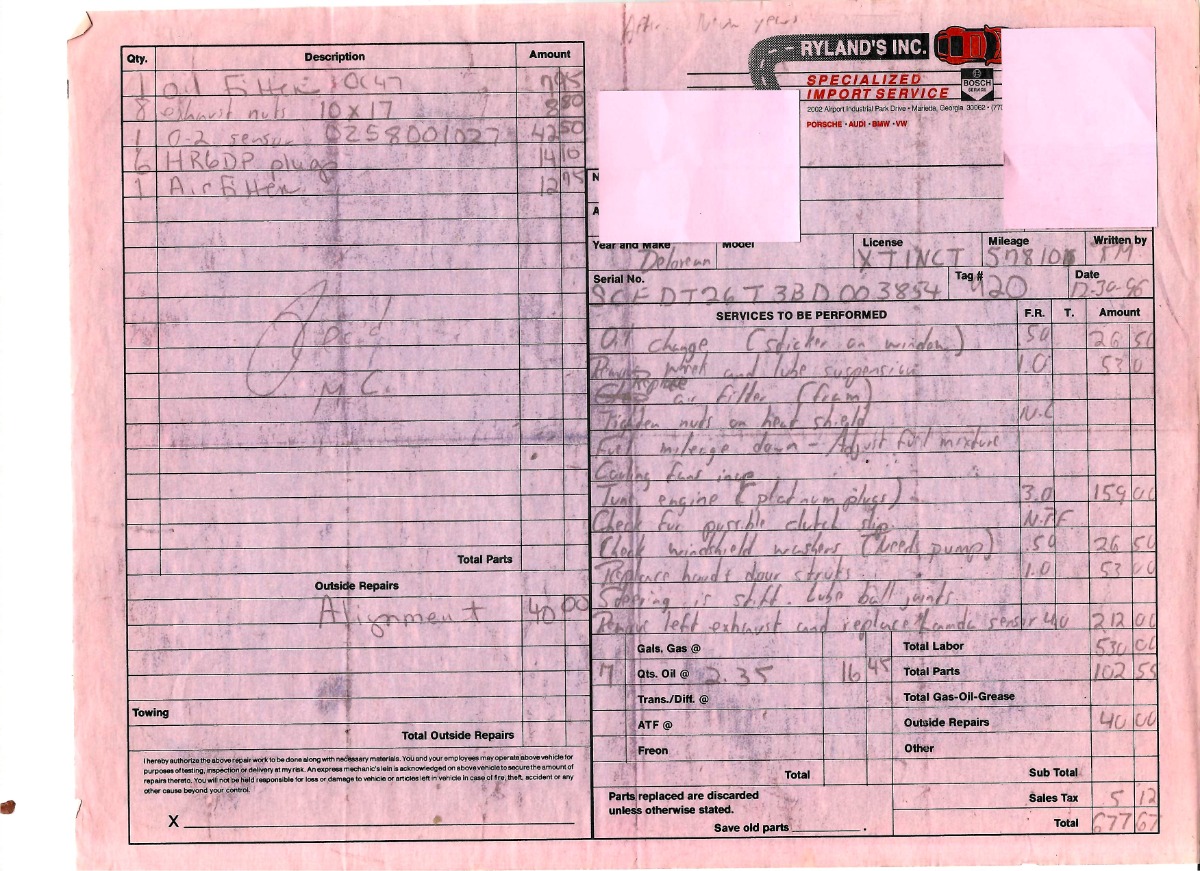 After New years
RYLAND'S INC.
SPECIALIZED
IMPORT SERVICE
BOSCH
SERVICE
2002 Airport Industrial Park Drive • Marietta, Georgia 30062 • (770
PORSCHE • AUDI • BMW • VW
Qty. Description Amount
1 oil Filter OC47 7 95
8 exhaust nuts 10x17 8 80
1 O-2 sensor 0258001027 42 50
6 HR6DP plugs 14 10
1 Air Filter 12 95
M.C.
Total Parts
Outside Repairs
Alignment 40 00
Towing
Total Outside Repairs
I hereby authorize the above repair work to be done along with necessary materials. You and your employees may operate above vehicle for
purposes of testing, inspection or delivery at my risk. An express mechanic's lein is acknowledged on above vehicle to secure the amount of
repairs thereto. You will not be held responsible for loss or damage to vehicle or articles left in vehicle in case of fire, theft, accident or any
other cause beyond your control.
X
N
A
Year and Make Model License Mileage Written by
Delorean XTINCT
Serial No. Tag # Date
SCEDT26T3BD003854 420 12-30-96
SERVICES TO BE PERFORMED F.R. T. Amount
Oil change (sticker on window) .50 26 50
Remove wheel and lube suspension 1.0 53 0
Replace air filter (fram)
Tighten nuts on heat shield N.C
Fuel mileage down - Adjust fuel mixture
Cooling fans inop
Tune engine (platinum plugs) 3.0 159 00
Check for possible clutch slip
Check windshield washers (Needs pump) .50 26 50
Replace door struts 1.0 53 00
Steering is stiff. Lube ball joints
Remove left exhaust and replace Lamda sensor 4.0 212 00
Gals. Gas @ Total Labor 530 00
7 Qts. Oil @ 2.35 16 45 Total Parts 102 55
Trans./Diff. @ Total Gas-Oil-Grease
ATF @ Outside Repairs 40 00
Freon Other
Total Sub Total
Parts replaced are discarded
unless otherwise stated.
Sales Tax 5 12
Save old parts Total 677 67